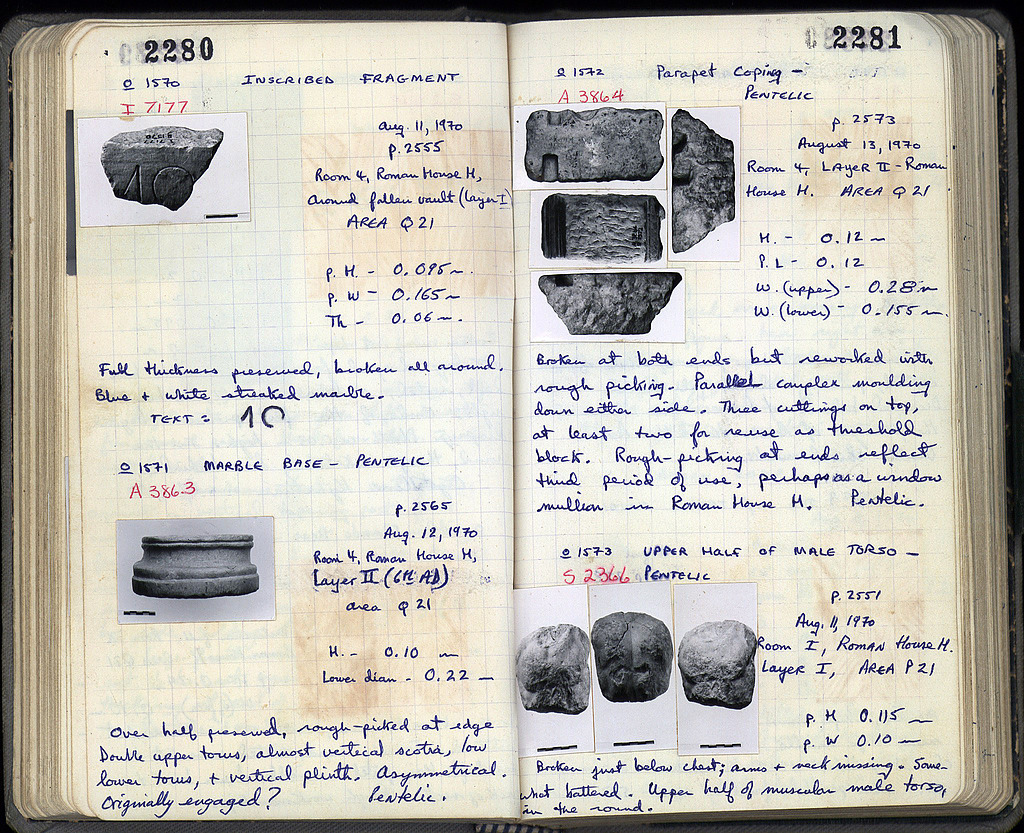 2280
Ω 1570 INSCRIBED FRAGMENT
I 7177
Aug. 11, 1970
p. 2555
Room 4, Roman House H,
around fallen vault (Layer I)
AREA Q 21
p. H. - 0.095 m.
p. W - 0.165 m
Th - 0.06 m.
Full thickness preserved, broken all around.
Blue + white streaked marble.
TEXT =
Ω 1571 MARBLE BASE - PENTELIC
A 3863
p. 2565
Aug. 12, 1970
Room 4, Roman House H,
Layer II (6th AD)
area Q 21
H. - 0.10 m
Lower diam - 0.22 m
Over half preserved, rough-picked at edge
Double upper torus, almost vertical scotia, low
lower torus, + vertical plinth. Asymmetrical.
Originally engaged? Pentelic.
2281
Ω 1572 Parapet Coping -
A 3864 PENTELIC
p. 2573
August 13, 1970
Room 4, LAYER II - Roman
House H. AREA Q 21
H. - 0.12 m
P. L - 0.12
W. (upper) - 0.28 m
W. (lower) - 0.155 m.
Broken at both ends but reworked with
rough picking. Parallel complex moulding
down either side. Three cuttings on top,
at least two for reuse as threshold
block. Rough-picking at ends reflect
third period of use, perhaps as a window
mullion in Roman House H. Pentelic.
Ω 1573 UPPER HALF OF MALE TORSO -
S 2366 PENTELIC
p. 2551
Aug. 11, 1970
Room I, ROMAN HOUSE H.
Layer I, AREA P 21
p. H 0.115 m
p. W 0.10 m
Broken just below chest; arms + neck missing. Some-
what battered. Upper half of muscular male torso,
in the round.